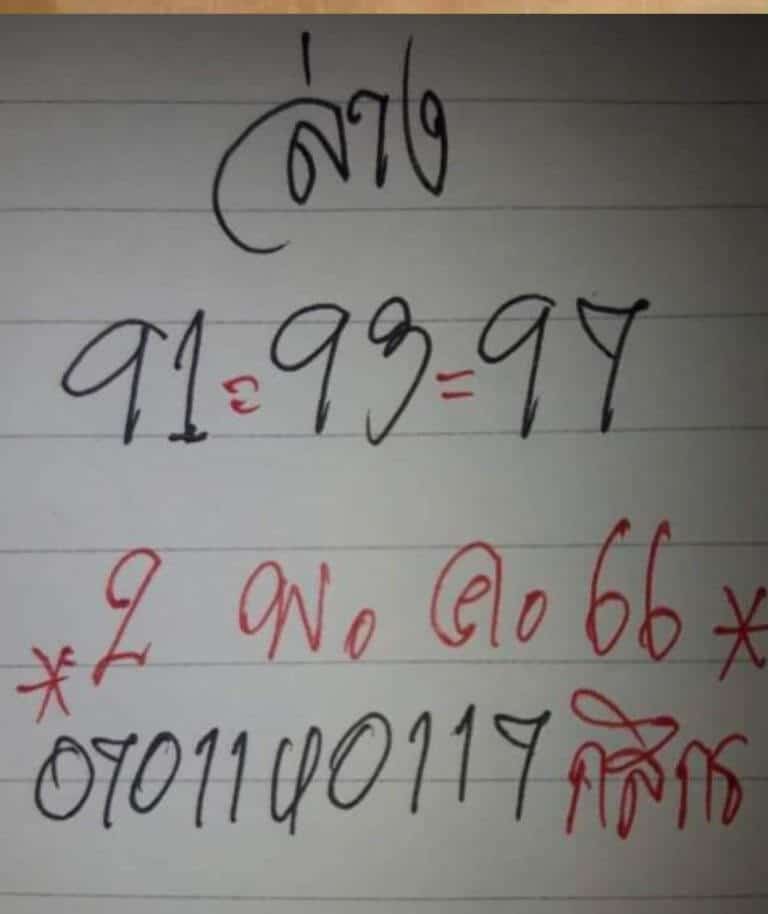 ล่าง
91=93=97
*2 พ.ค. 66*
0701140117 กสิกร